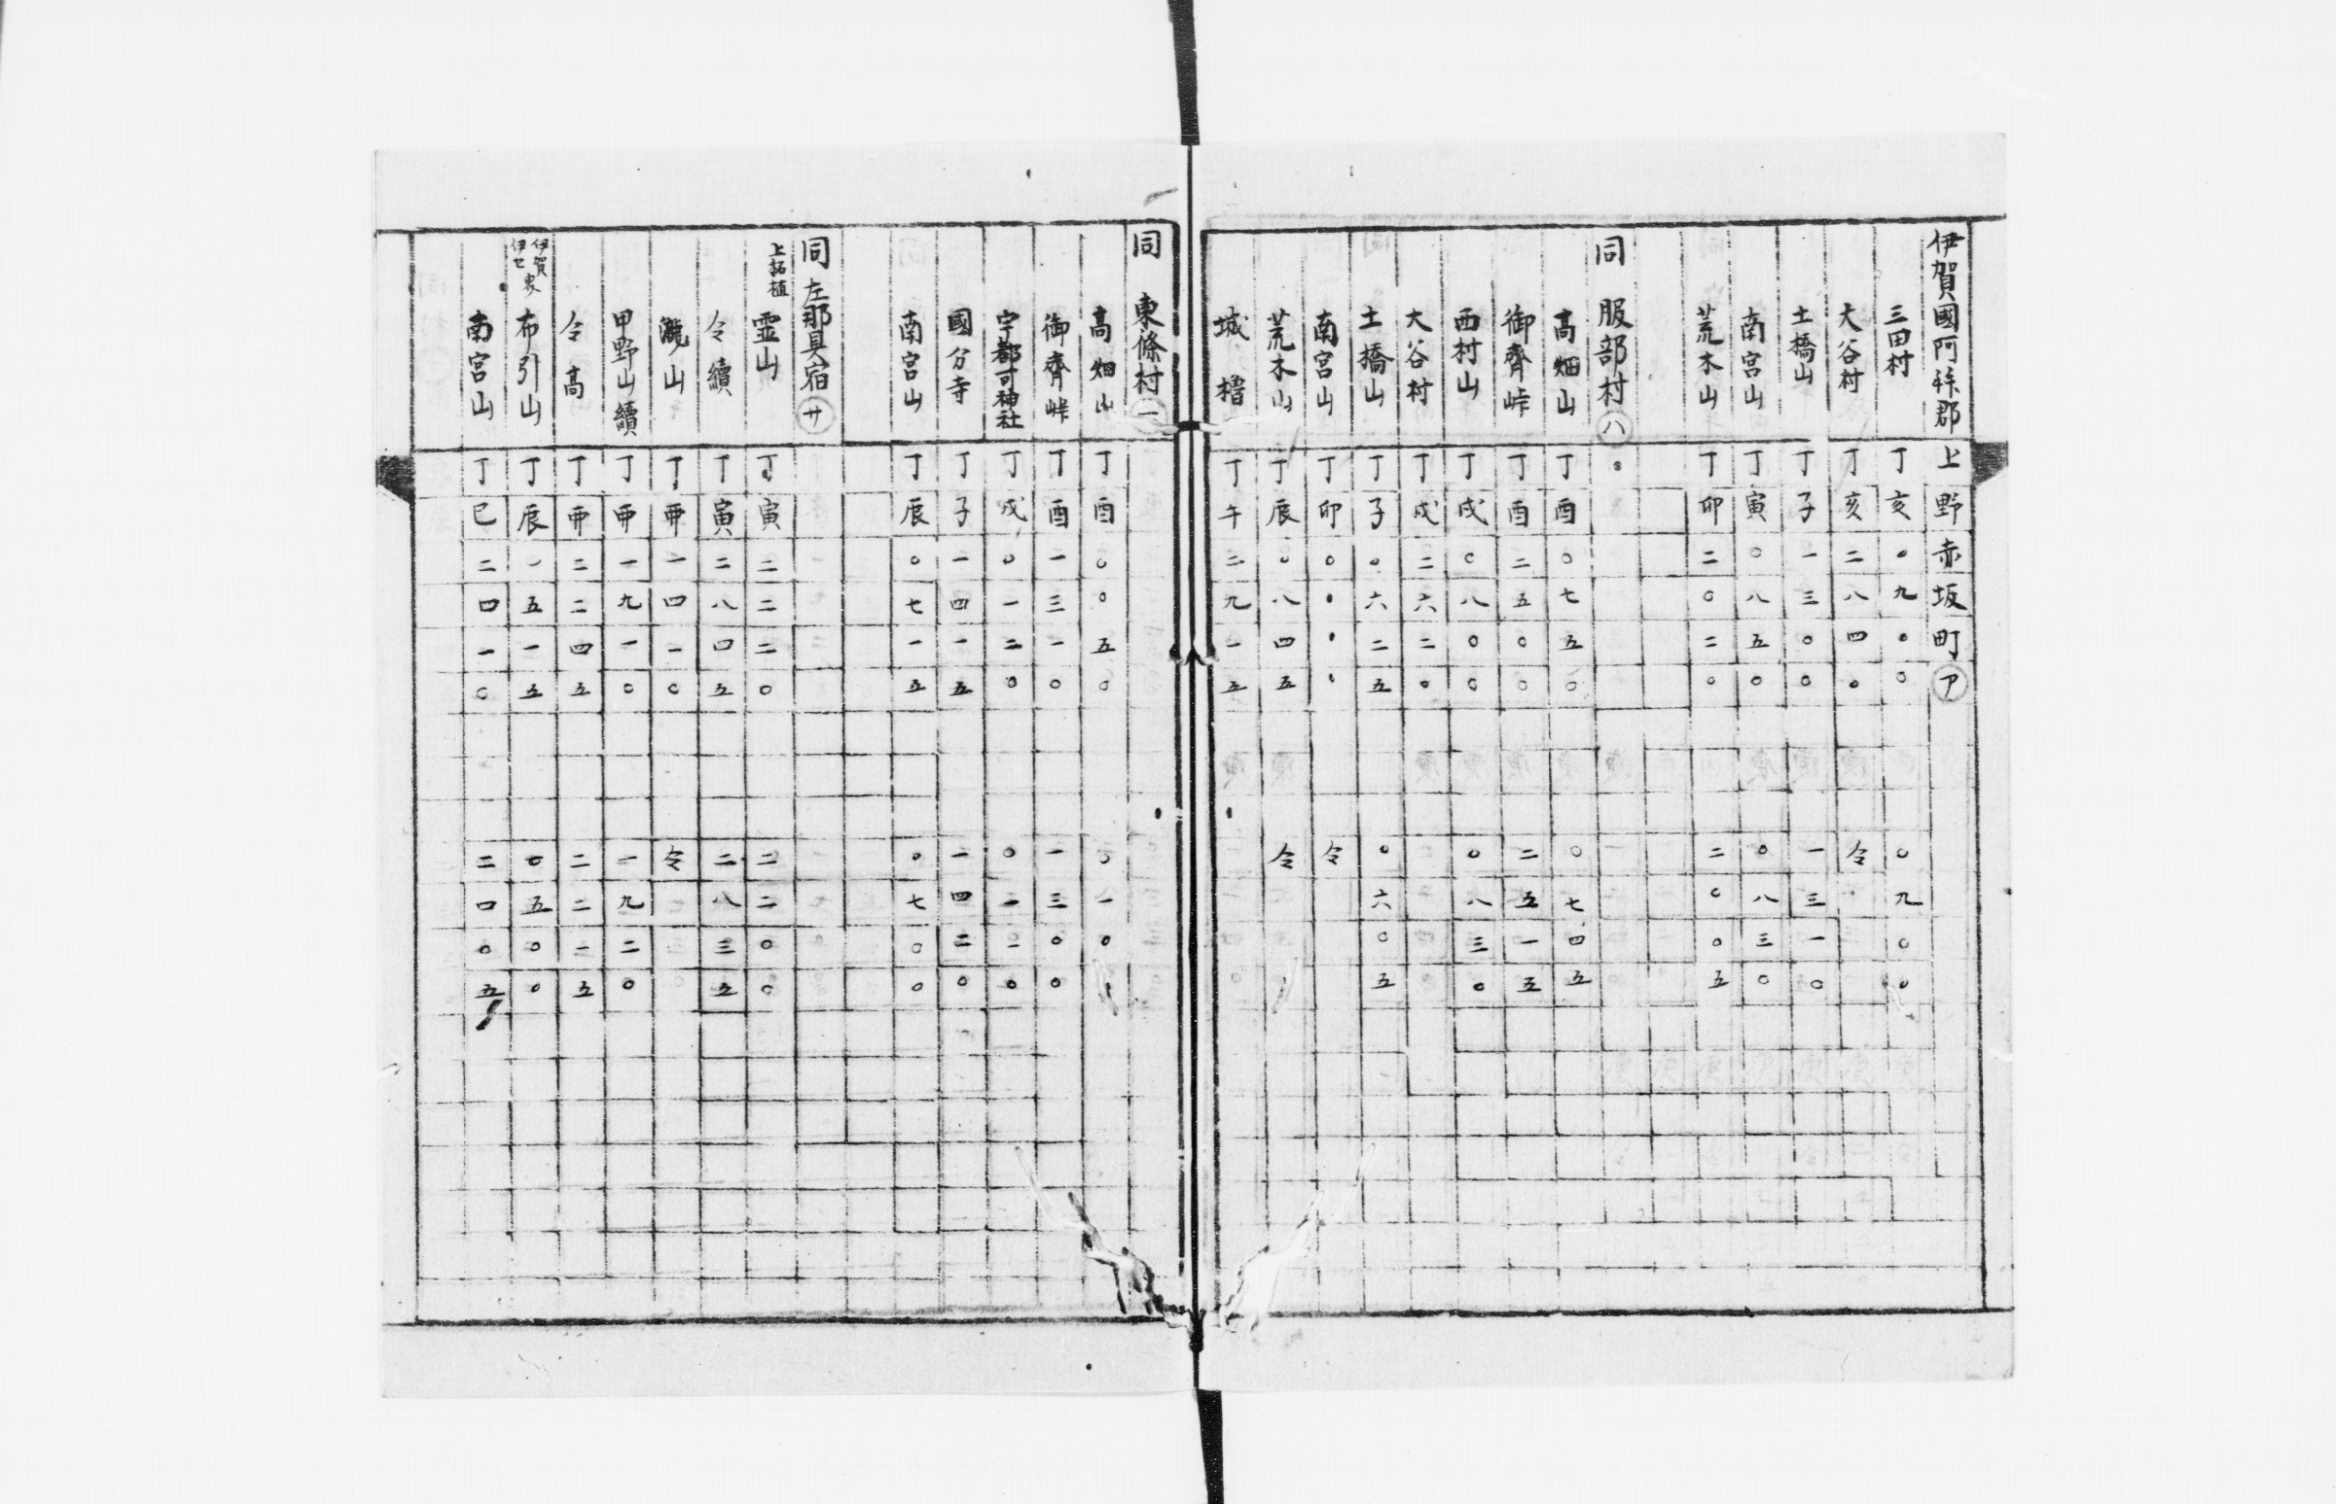 伊賀國阿拝郡上野赤坂町㋐
三田村丁亥〇九〇〇 〇九〇〇
大谷村丁亥二八四〇 仝
土橋山丁子一三〇〇 一三一〇
南宮山丁寅〇八五〇 〇八三〇
荒木山丁卯二〇二〇 二〇〇五
同 服部村㋩
高畑山丁酉〇七五〇 〇七四五
御齊峠丁酉二五〇〇 二五一五
西村山丁戌〇八〇〇 〇八三〇
大谷村丁戌二六二〇
土橋山丁子〇六二五 〇六〇五
南宮山丁卯〇〇〇〇 仝
荒木山丁辰〇八四五 仝
城櫓丁午二九一五
同 東條村㊀
高畑山丁酉〇〇五〇 〇一〇
御齊峠丁酉一三一〇 一三〇〇
宇都可神社丁戌〇一二〇 〇二一〇
國分寺丁子一四一五 一四二〇
南宮山丁辰〇七一五 〇七〇〇
同 左那具宿㋚
上拓植 霊山丁寅二二二〇 二二〇〇
仝 續丁寅二八四五 二八三五
山丁亜一四一〇 仝
甲野山續丁亜一九一〇 一九二〇
仝 高丁亜二二四五 二二一五
伊賀伊セ界 布引山丁辰〇五一五 〇五〇〇
南宮山丁巳二四一〇 二四〇五